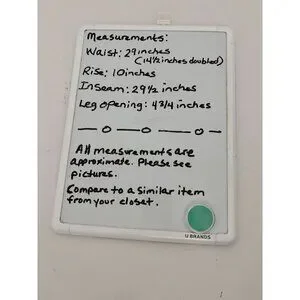 Measurements:
Waist: 29 inches
(14 1/2 inches doubled)
Rise: 10 inches
Inseam: 29 1/2 inches
Leg opening: 4 3/4 inches
All measurements are
approximate. Please see
pictures.
Compare to a similar item
from your closet.
U BRANDS